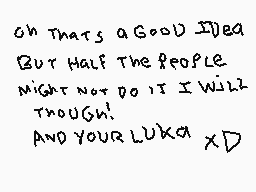 Oh THATS a GOOD IDea
BUT HALF THE PEOPLE
MiGHT NOT DO IT I WiLL
THOUGH!
AND YOUR LUKa XD